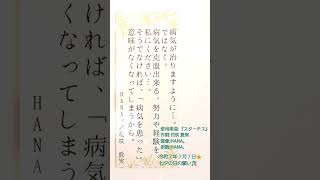 病気が治りますように…。
ではなく。
病気を克服出来る、努力や経験を
私にください…。
そうでなければ、「病気を患った」
意味がなくなってしまうから。
HANA。/花咲 眞実
くなってしまう
ければ、「病気
HANA
愛用楽曲:『スターチス』
作詞:HANA。
令和7年7月7日⭐
七夕の日の願い方